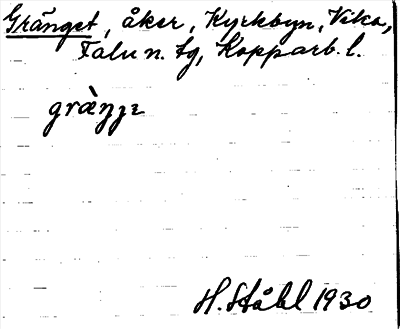 Grånget, åker, Kyrkbyn, Vika,
Falu n. tg, Kopparb. l.
H. Ståhl 1930